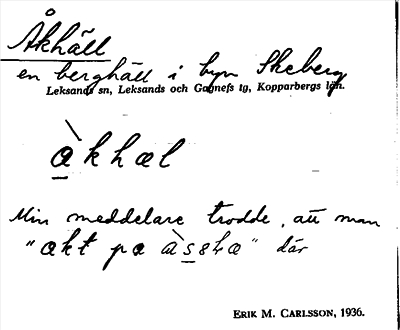 Åkhäll
en berghäll i byn Skeberg
Leksands sn, Leksands och Gagnefs tg, Kopparbergs län.
àkhæl
Min meddelare trodde, att man
"ækt pæ" där
ERIK M. CARLSSON, 1936.